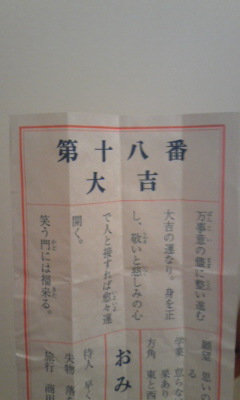 第十八番
大吉
万事意の儘に整い進む
大吉の運なり。身を正
し、敬いと慈しみの心
で人と接すれば愈々運
開く。
笑う門には福来る。
願望 思いの
る
学業 怠らな
果あり
方角 東と西
おみ
待人 早く
失物 落
旅行 商用